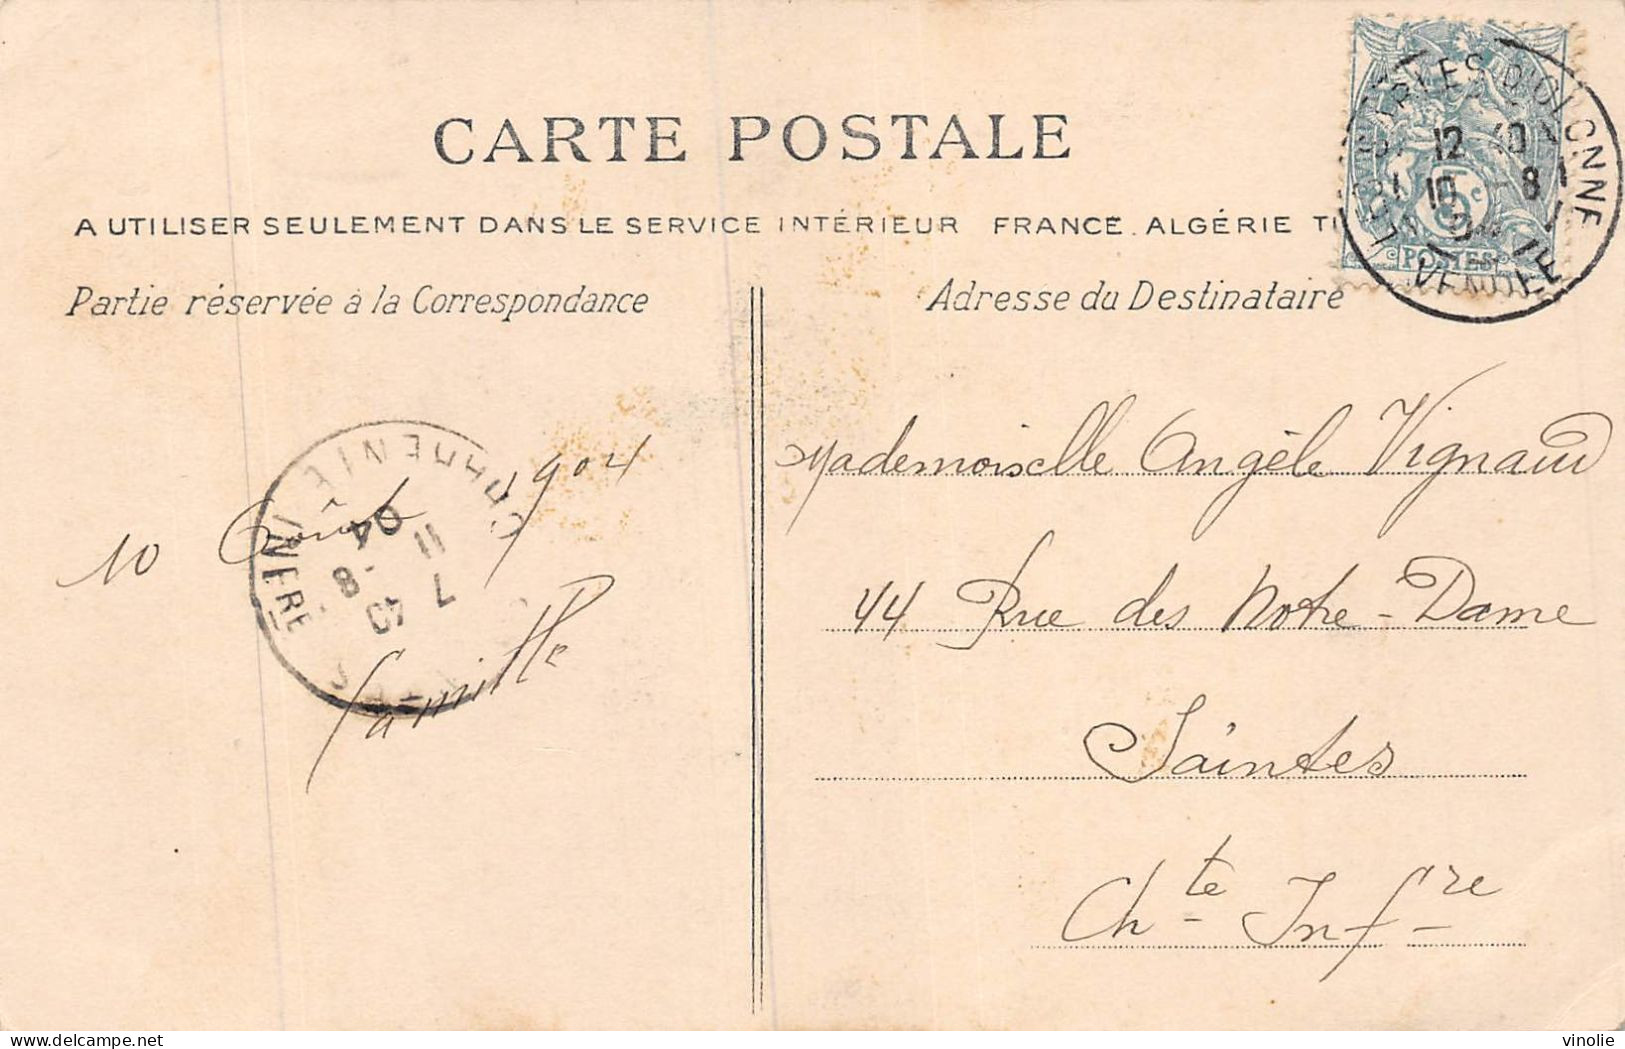 CARTE POSTALE
A UTILISER SEULEMENT DANS LE SERVICE INTÉRIEUR FRANCE. ALGÉRIE
Partie réservée à la Correspondance
Adresse du Destinataire
LES SABLES D'OLONNE
12 40
10 -8
04
VENDÉE
5c
POSTES
Mademoiselle Angèle Vignaud
44 Rue des Notre-Dame
Saintes
Chte Infre
10 Août 1904
CHARENTE INFRE
7
11 -8
04
vinolie